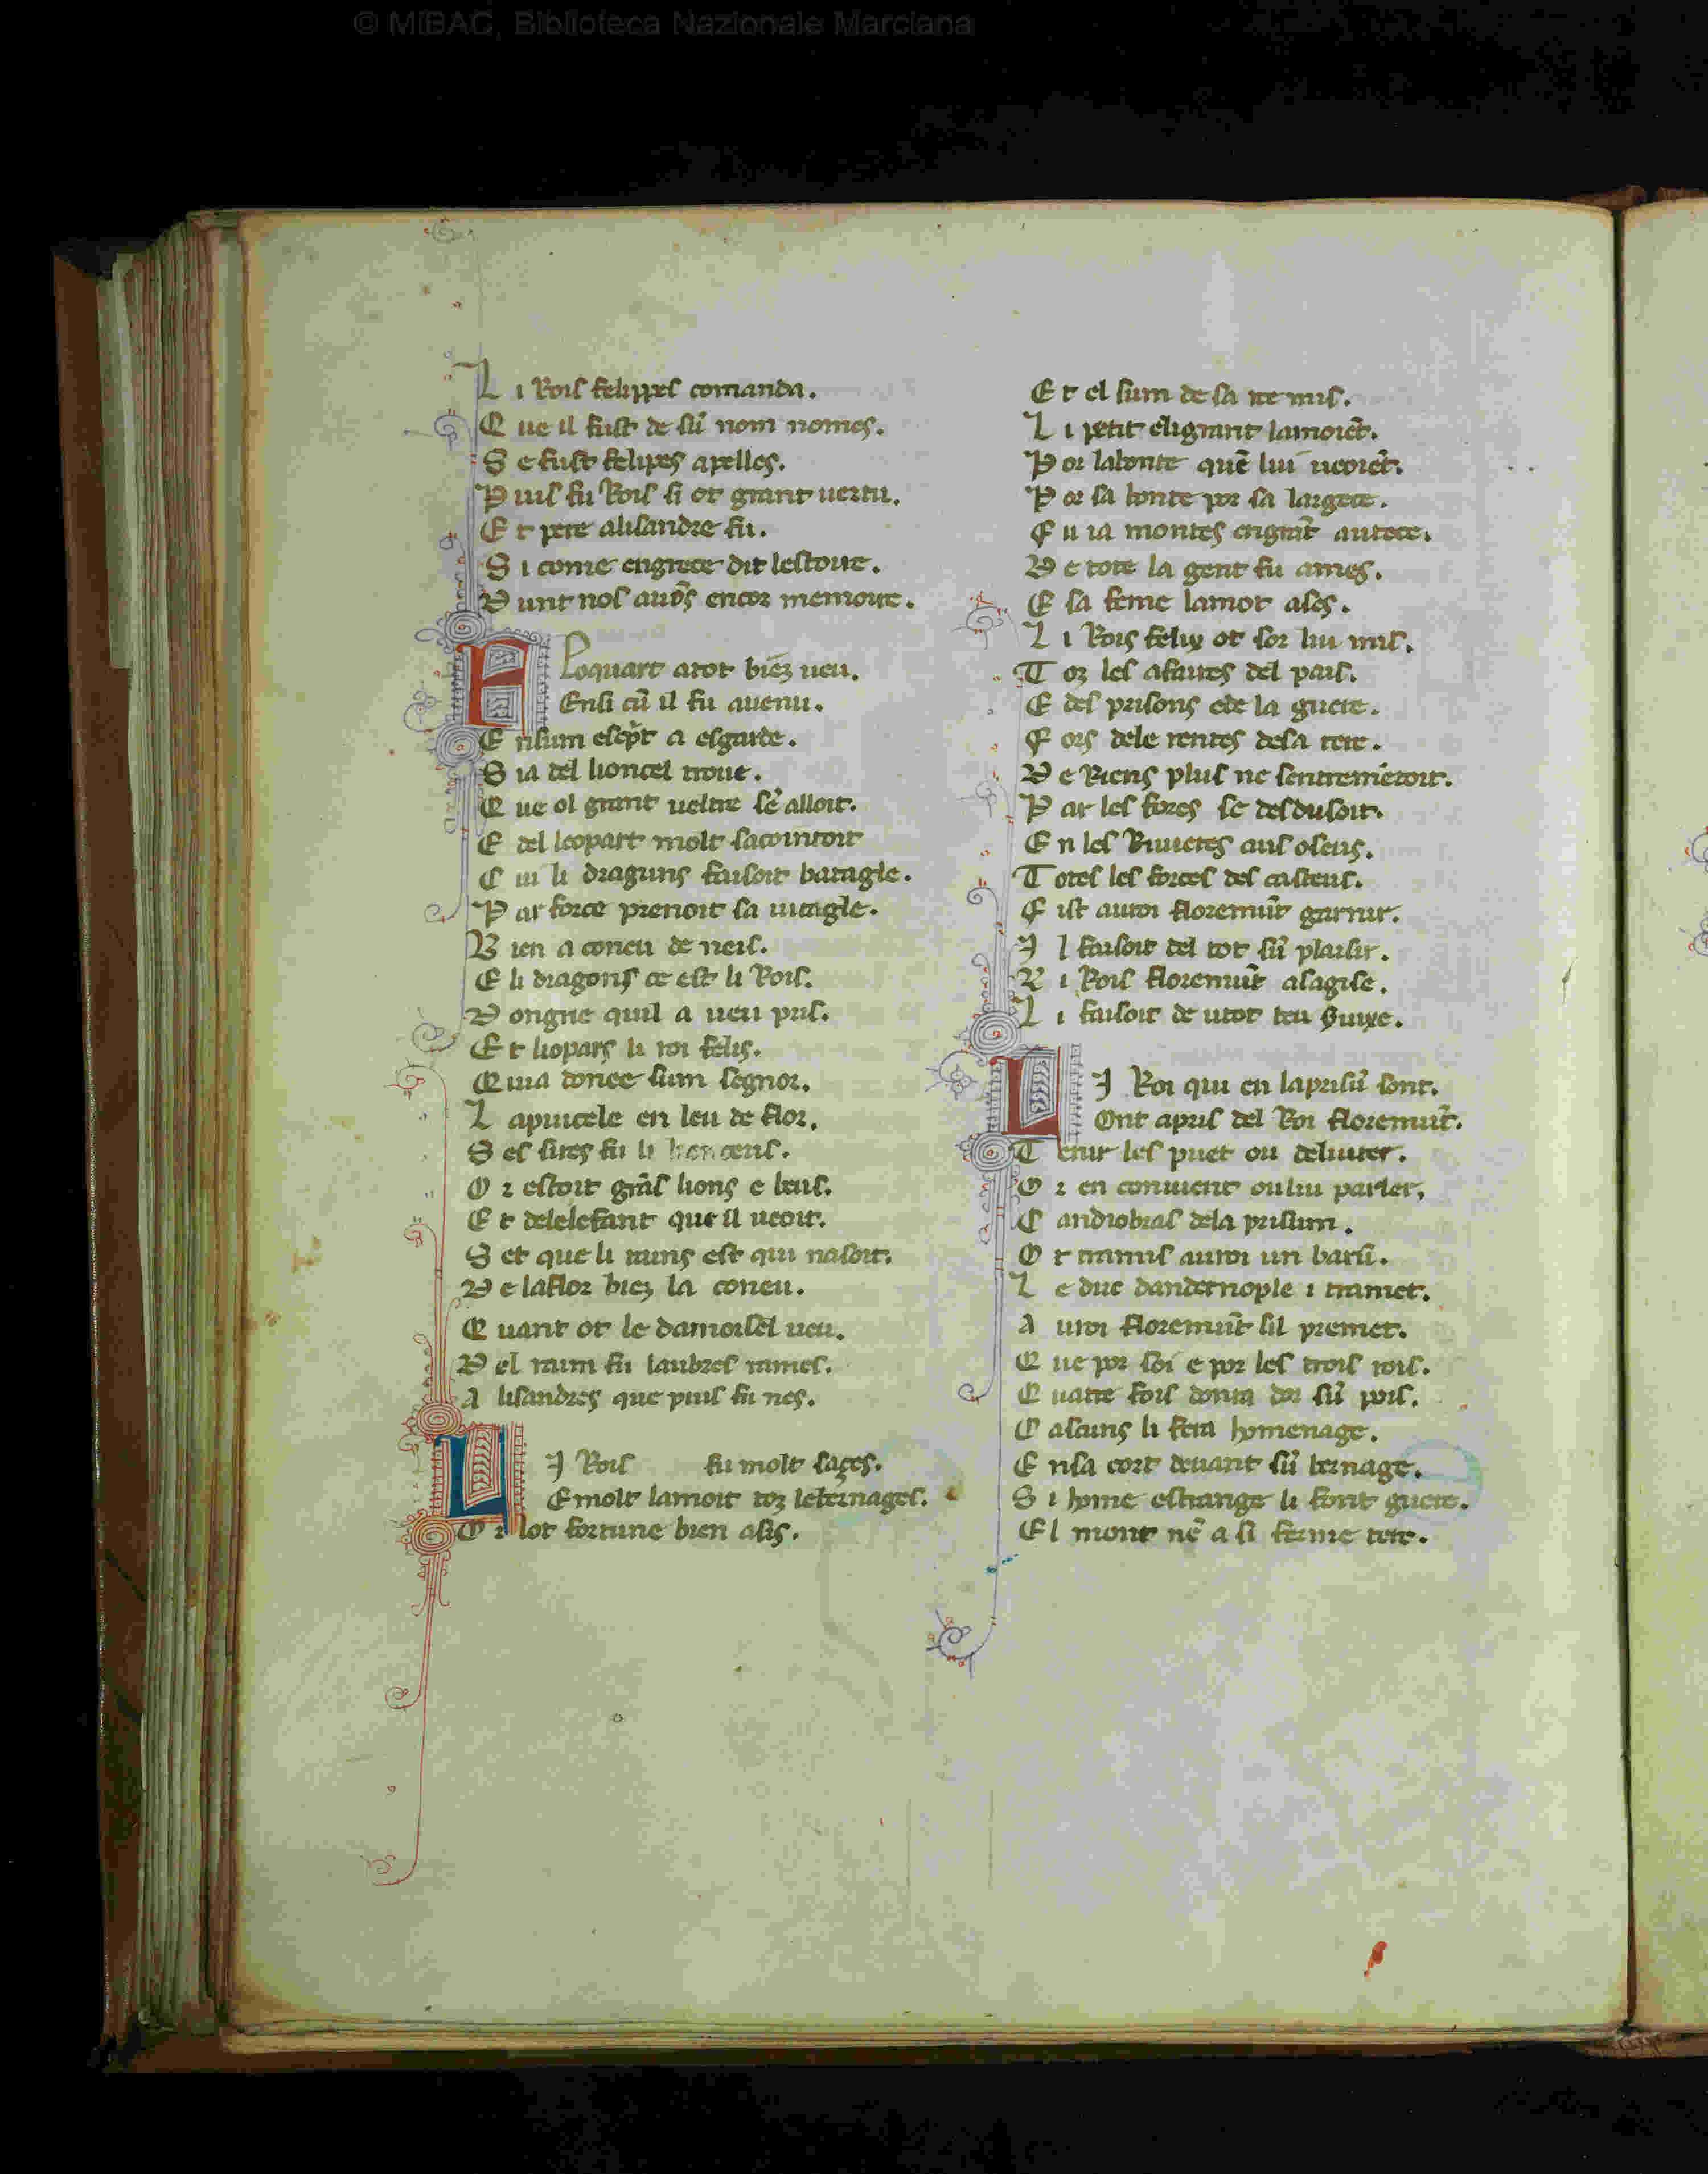 © MiBAC, Biblioteca Nazionale Marciana
L i Rois felippes comanda.
Q ue il fust de sū nom nomes.
S e fust felipes apelles.
P uis fu Rois si ot grant uertu.
E t pere alisandre fu.
S i come engrece dit lestoire.
D unt nos auōs encor memoire.
E Loquart atot biez ueu.
Ensi cū il fu auenu.
E nsum escpt a esgarde.
S ia del lioncel troue.
Q ue ol grant ueltre sē alloit.
E del leopart molt sacointoit
C ui li draguns faisoit batagle.
P ar force prenoit sa uitagle.
B ien a coneu de neis.
E li dragons ce est li Rois.
D ongrie quil a ueu pris.
E t liopars li roi felis.
Q uia donee sum segnor.
L apuicele en leu de flor.
S es sires fu li lionceus.
O r estoit grās lions e beus.
E t delelefant que il ueoit.
S et que li rains est qui nasoit.
D e laflor biez la coneu.
Q uant ot le damoisel ueu.
D el raim fu laubres rames.
A lisandres que puis fu nes.
L I Rois fu molt sages.
E molt lamoit toz lebernages.
O r lot fortune bien asis.
E t el sum de sa rere mis.
L i petit eligrant lamoiēt.
P or labonte quē lui ueoiēt.
P or sa bonte por sa largece.
F u ia montes engrāt autece.
D e tote la gent fu ames.
E sa feme lamot ases.
L i Rois felip ot sor lui mis.
T oz les afaires del pais.
E des prisons ede la guere.
F ors dele rentes desa tere.
D e Riens plus ne sentremetoit.
P ar les fores se desdusoit.
E n les Riuieres aus oseus.
T otes les forces des casteus.
F ist auroi floremūt garnir.
I l faisoit del tot sū plaisir.
L i Rois floremūt alagise.
L i faisoit de utot teu Guixe.
L I Roi qui en laprisū sont.
Ont apris del Roi floremūt.
T enir les puet ou deliurer.
O r en conuient oului parler.
C andiobras dela prisum.
O t tramis auroi un barū.
L e duc dandernople i tramet.
A uroi floremūt sil premet.
Q ue por soi e por les trois rois.
Q uatre fois donra dor sū pois.
C ascuns li fera homenage.
E nsa cort deuant sū bernage.
S i home estrange li font guere.
E l mont nē a si ferme tere.